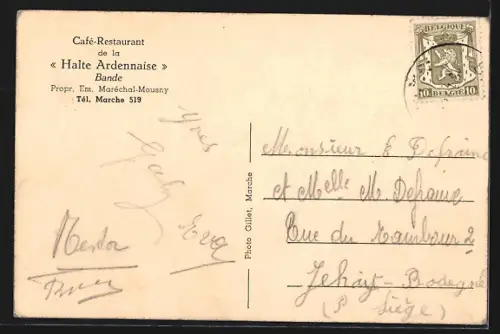 Café-Restaurant
de la
« Halte Ardennaise »
Bande
Propr. Em. Maréchal-Mousny
Tél. Marche 519
BELGIQUE
10 BELGIË 10
Yves
Gaby
Eva
Nestor
Photo Gillet, Marche
Monsieur E Defraine
et Melle M. Defraine
Rue du Tambour 2
Jehay-Bodegnée
(P Liège)